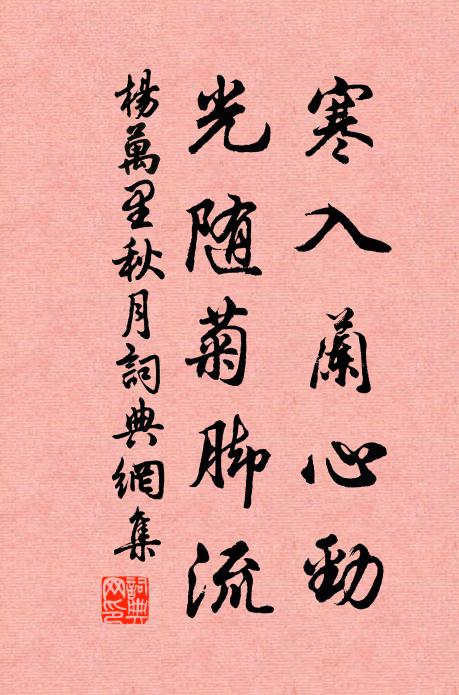 寒入蘭心勁
光随菊脚流
楊萬里秋月詞典網集
詞典网印